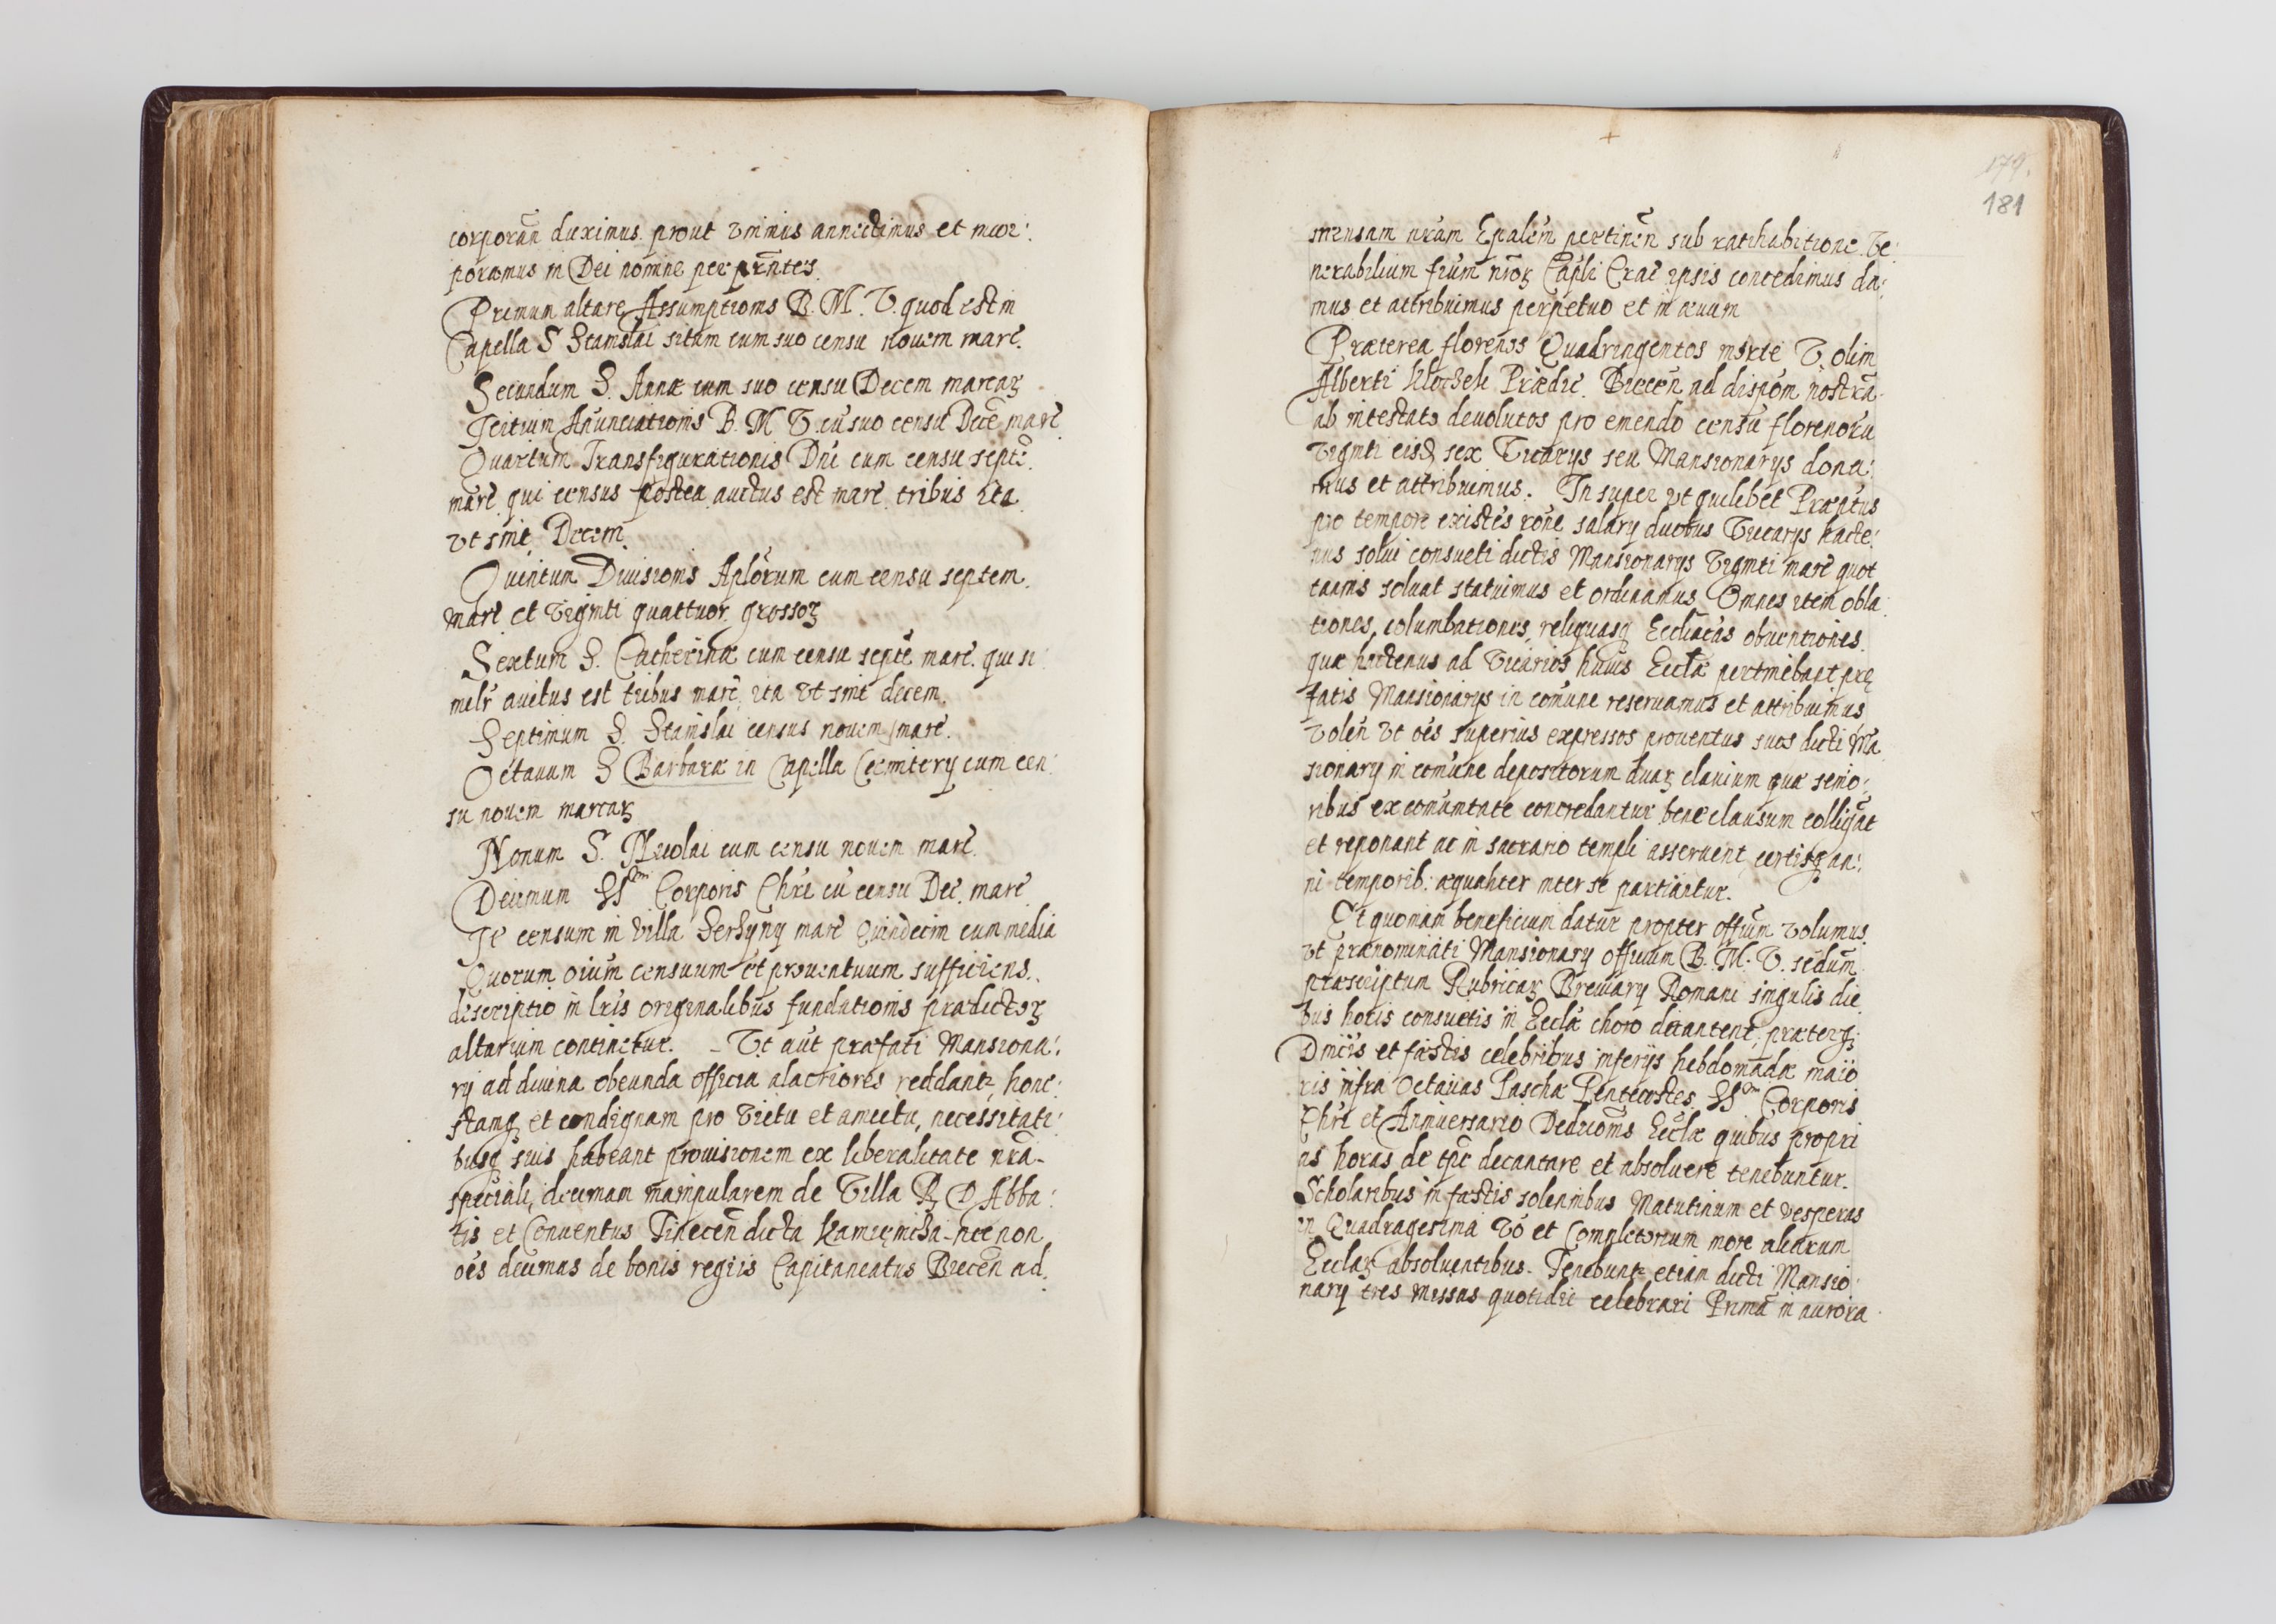 corporan̄ duximus prout vnimus annectimus et incor:
poramus in Dei nomine per pr̄ntes.
Primum altare Assumptionis B. M. V. quod est in
Capella S Stanislai sitam cum suo censu novem marc̄.
Secundum S. Annæ cum suo censu Decem marcaꝝ
Tertium Anūnciationis B. M V. cū suo censu Decē marc̄
Quartum Transfigurationis Dn̄i cum censu septē.
marc̄. qui census postea auctus est marc̄. tribus ita
vt sint Decem.
Quintum Diuisionis Aplōrum cum censu septem.
marc̄ et viginti quattuor grossoꝝ
Sextum S. Catherinæ cum censu septē marc̄. qui si
milr̄ auctus est tribus marc̄, ita vt sint decem.
Septimum S. Stanislai census novem marc̄.
Octauum S Barbaræ in Capella Cæmitery cum cen:
su novem marcaꝝ
Nonum S. Nicolai cum censu novem marc̄.
Decimum SSm Corporis Chr̄i cū censu Dec. marc̄
It̄ censum in villa marc̄ Quindecim cum media
Quorum oīum censuum et prouentuum sufficiens.
descriptio in lr̄is originalibus fundationis prædictoꝝ
altarium continetur. – Vt aūt præfati Mansiona:
ry ad diuina obeunda officia alacriores reddantꝛ, hone:
stamqꝫ et condignam pro victu et amictu, necessitati:
busqꝫ suis habeant prouisionem ex liberalitate nr̄a
speciali, decimam manipularem de Villa R D Abba:
tis et Conuentus Tinecen̄ dicta necnon
oēs decimas de bonis regiis Capitaneatus Biecen̄ ad.
179.
181
mensam nr̄am Epalēm pertinen̄ sub ratihabitione Ve:
nerabilium fr̄um nr̄oꝝ Capli Crac̄ ipsis concedimus da:
mus et attribuimus perpetuo et in æuum
Præterea florenos Quadringentos V. olim
Alberti Prædic̄. Biecen̄ ad dispōm nostrā
ab intestato deuolutos pro emendo censū florenorū
viginti eisd̄ sex Vicarys seu Mansionarys dona:
mus et attribuimus. In super vt quilibet Præptus
pro tempore existēs rōne salary duobus Vicarys hacte:
nus solui consueti dictis Mansionarys viginti marc̄ quot
tannis soluat statuimus et ordinamus. Omnes item obla
tiones, columbationes, reliquasqꝫ Ecclīatās obuentiones.
quæ hactenus ad Vicarios huius Eccl̄æ pertinebant præ
fatis Mansionarys in comune reseruamus et attribuimus
volen̄ vt oēs superius expressos prouentus suos dicti Mā
sionary in comūne depositorum duaꝝ clauium quæ senio:
ribus ex comūnitate concredantur bene clausum colligāt
et reponant ac in sacrario templi asseruent, certisqꝫ an:
ni temporib: æqualiter inter se partiantur.
Et quoniam beneficium datur propter offiūm volumus
vt prænominati Mansionary officium B. M. V. secdūm
præscriptum Rubricaꝝ Breuiary Romani singulis die
bus horis consuetis in Eccl̄æ choro decantent, præterqꝫ
Dnīcis et fæstis celebribus inferijs hebdomadæ maiō
ris infra Octauas Paschæ Pentecostes, SSm Corporis
Chr̄i et Anniuersario Dedicōnis Eccl̄æ quibus propri
as horas de tpē decantare et absoluere tenebuntur.
Scholaribus in fæstis solennibus Matutinum et vesperas
in Quadragesima vō et Completorium more aliarum
Ecclaꝝ absoluentibus. Tenebuntꝛ etiam dicti Mansio:
nary tres Missas quotidie celebrari Primā in aurora